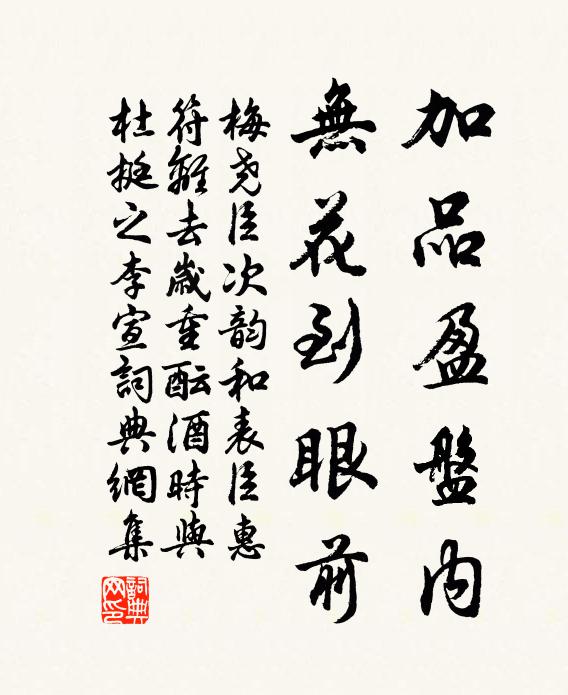 加品盈盤内
無花到眼前
梅尧臣次韵和表臣惠
符離去歳重酝酒時與
杜挺之李宣詞典網集
詞典
网印